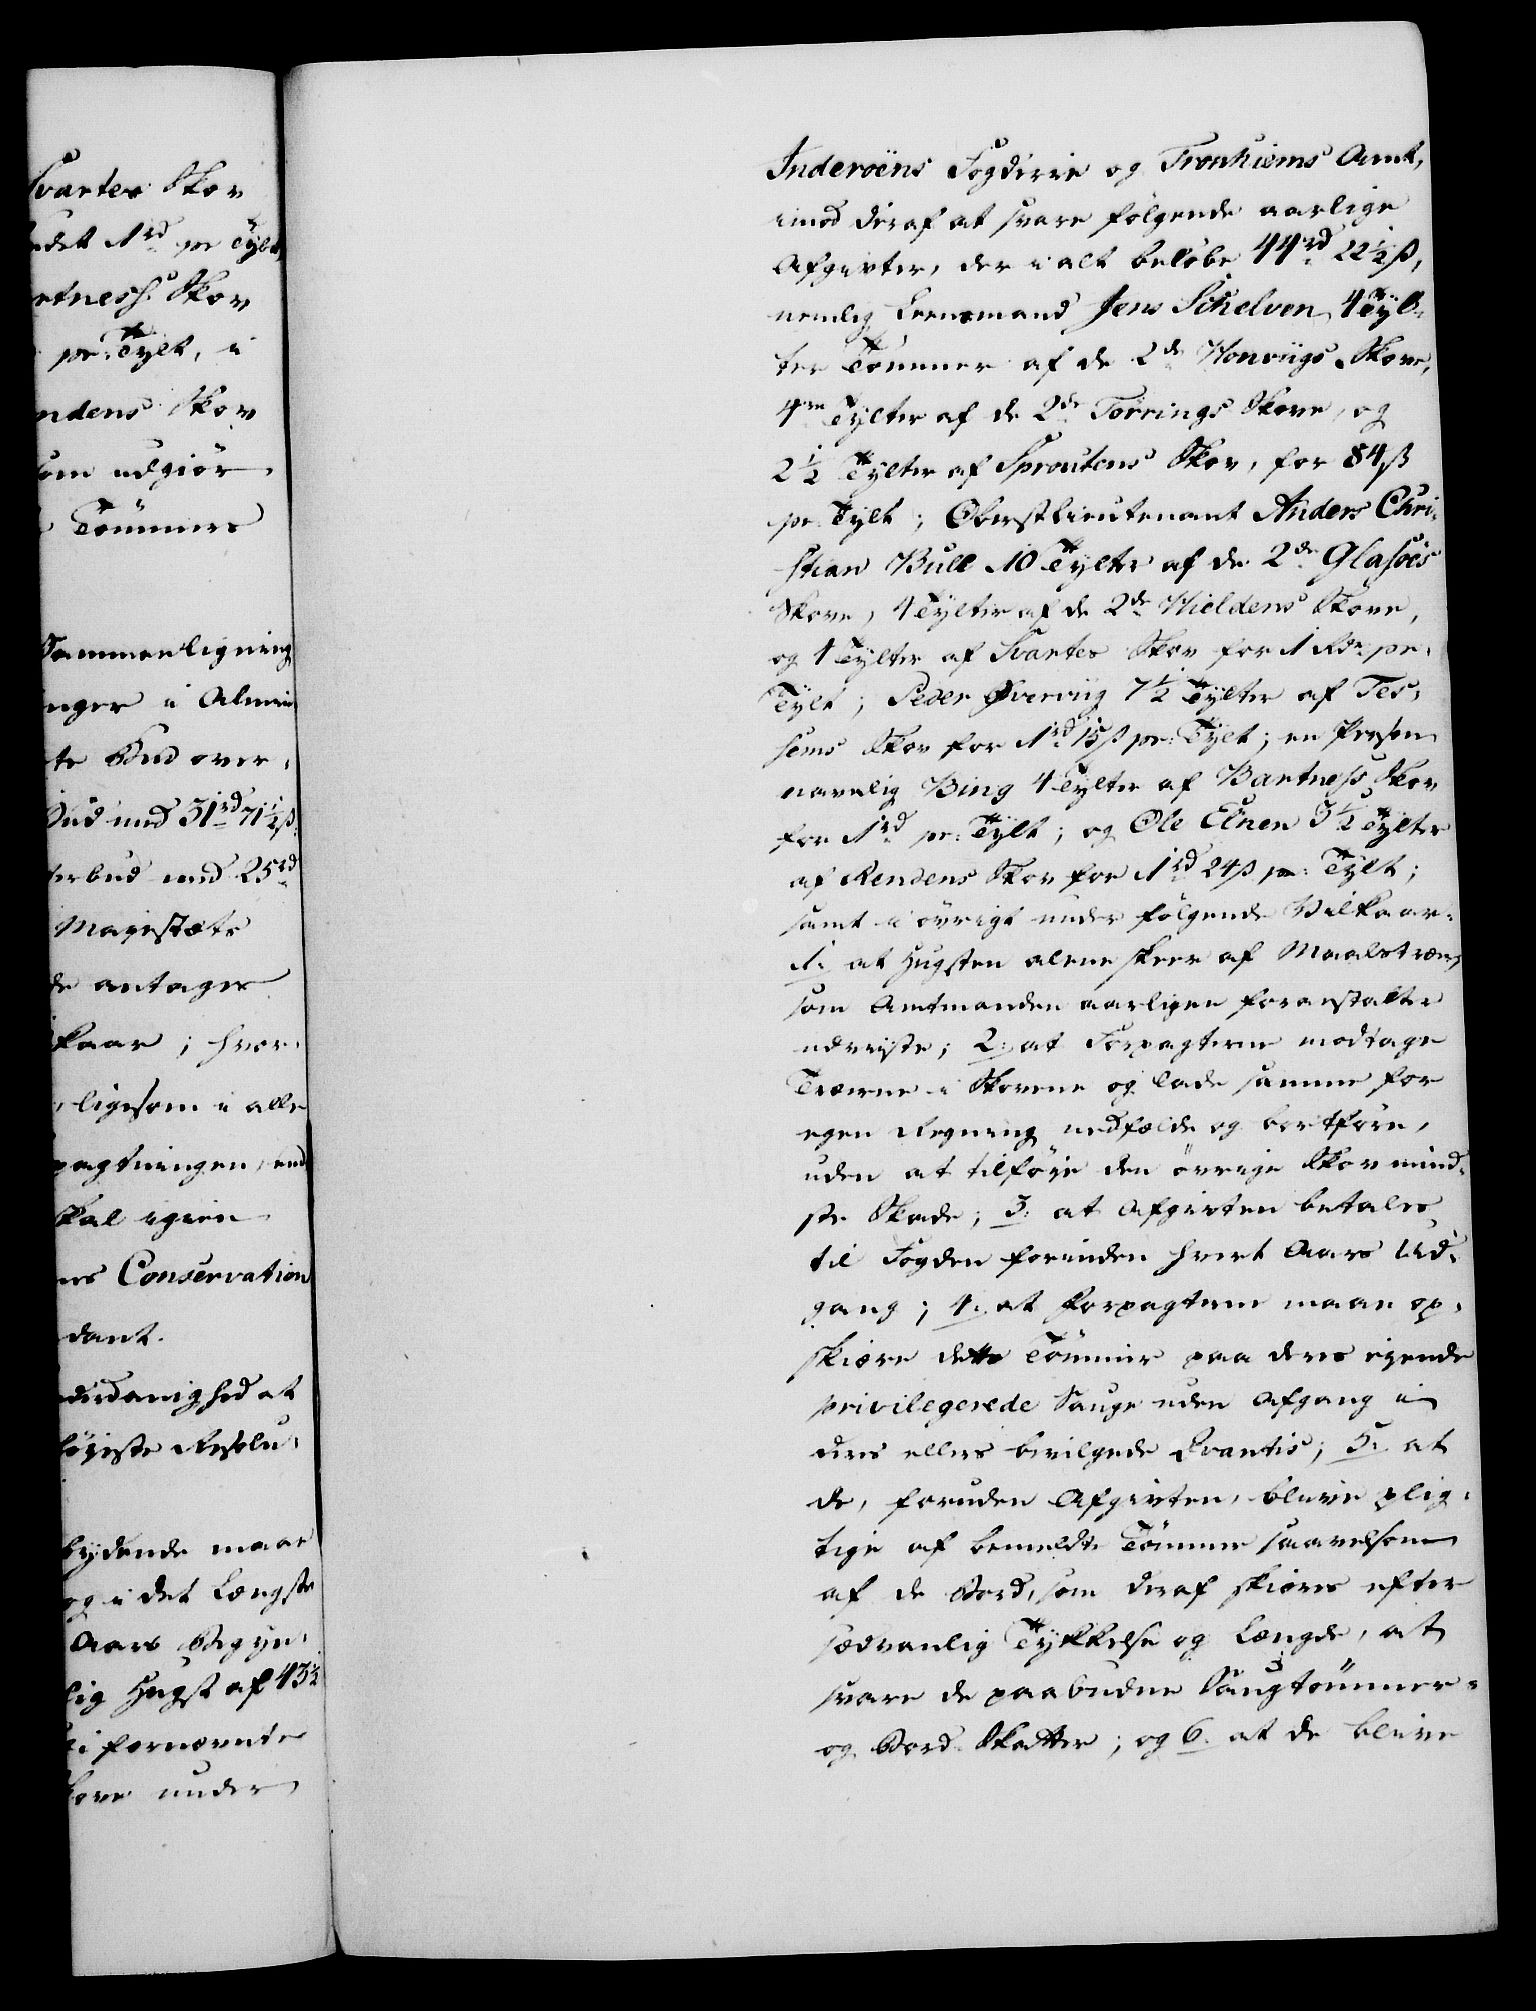 Svartes Skov
udet 1rd pr Tylt,
rtness Skov
pr: Tylt, i
ndens Skov
som udgiör
Tømmers
Sammenligning
nger i Almin
te Bud over,
Bud med 31rd 71½ ß.
erbud med 25rd
Majestæts
de antages
kaar; hvor,
ligesom i alle
pagtningen, end
skal igien
nes Conservation
dant.
derdanighed at
höieste Resolu,
bydende maae
og i det Længste
Aars Begyn,
lig Hugst af 43½
i fornævnte
kove under
Inderöens Fogderie og Tronhiems Amt,
imod deraf at svare følgende aarlige
Afgivter, der i alt beløbe 44rd 22½ ß,
nemlig Leensmand Jens Schelven 4 Tyl-
ter Tømmer af de 2de Honviigs Skove,
4re Tylter af de 2de Törrings Skove, og
2½ Tylter af Sproutens Skov, for 84 ß
pr. Tylt; Oberstlieutenant Anders Chri-
stian Bull 10 Tylter af de 2de Glasöes
Skove, 4 Tylter af de 2de Hieldens Skove,
og 4 Tylter af Svartes Skov for 1 Rdr. pr.
Tylt; Peder Qverviig 7½ Tylter af Tes-
sems Skov for 1rd 15 ß pr: Tylt; en Person
navnlig Bing 4 Tylter af Bartness Skov
for 1rd pr: Tylt; og Ole Elnen 3½ Tylter
af Rendens Skov for 1rd 24 ß pr: Tylt;
samt i övrigt under følgende Vilkaar:
1. at Hugsten alene skeer af Maalstræer,
som Amtmanden aarligen foranstalter
udviiste; 2. at Forpagterne modtage
Træerne i Skovene og lade samme for
egen Regning nedfælde og bortføre,
uden at tilføje den övrige Skov mind-
ste Skade; 3. at Afgivten betales
til Fogden forinden hvert Aars Ud-
gang; 4. at Forpagterne maae op-
skiære dette Tømmer paa deres ejende
privilegerede Sauge uden Afgang i
deres ellers bevilgede Qvantis; 5. at
de, foruden Afgivten, blive plig-
tige af bemeldte Tømmer saavelsom
af de Bord, som deraf skiæres efter
sædvanlig Tykkelse og Længde, at
svare de paabudne Saugtömmer-
og Bord-Skatter; og 6. at de blive